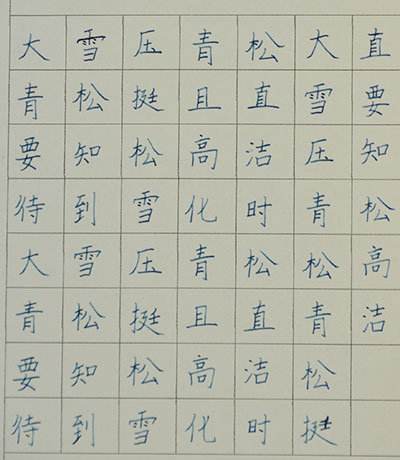 大雪压青松大直
青松挺且直雪要
要知松高洁压知
待到雪化时青松
大雪压青松松高
青松挺且直青洁
要知松高洁松
待到雪化时挺